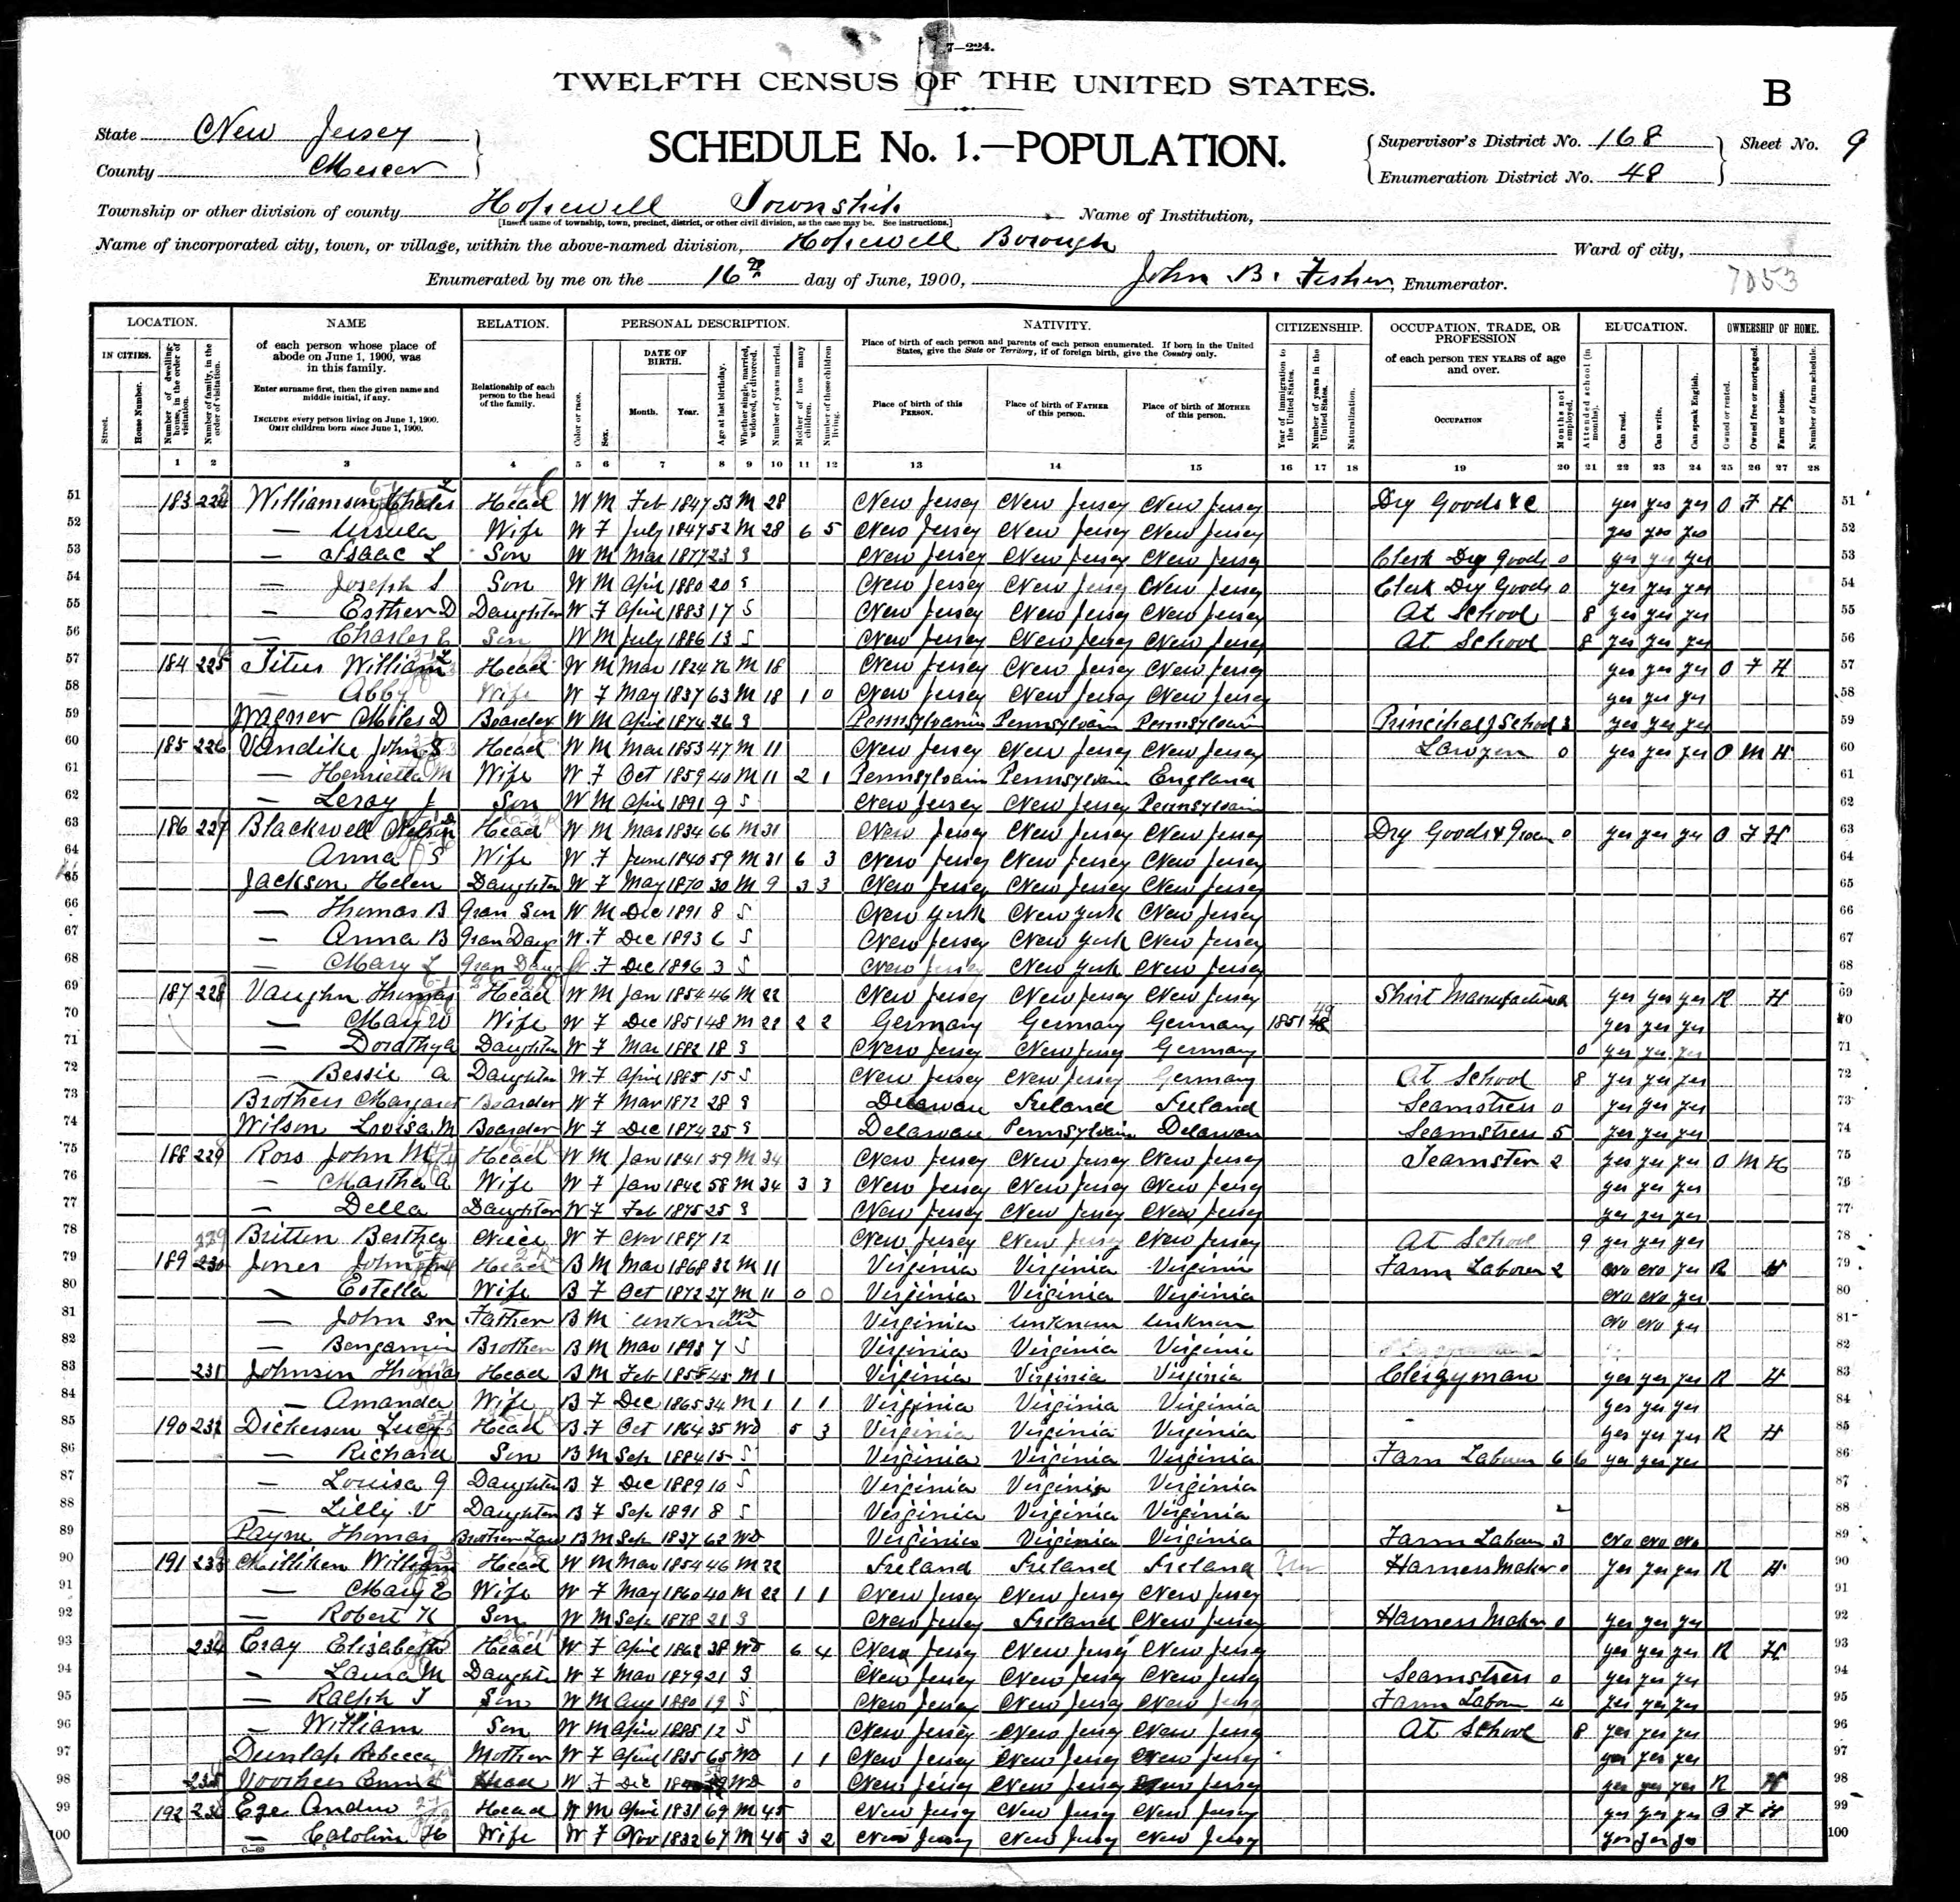 7—224.
TWELFTH CENSUS OF THE UNITED STATES.
B
State New Jersey
County Mercer
SCHEDULE No. 1.—POPULATION.
Supervisor's District No. 168
Enumeration District No. 48
Sheet No. 9
Township or other division of county Hopewell Township
[Insert name of township, town, precinct, district, or other civil division, as the case may be. See instructions.]
Name of Institution,
Name of incorporated city, town, or village, within the above-named division, Hopewell Borough
Ward of city,
Enumerated by me on the 16 day of June, 1900, John B. Fisher, Enumerator.
7053
LOCATION. NAME RELATION. PERSONAL DESCRIPTION. NATIVITY. CITIZENSHIP. OCCUPATION, TRADE, OR PROFESSION EDUCATION. OWNERSHIP OF HOME.
IN CITIES. Street. House Number. Number of dwelling-house, in the order of visitation. Number of family, in the order of visitation.
of each person whose place of abode on June 1, 1900, was in this family.
Enter surname first, then the given name and middle initial, if any.
INCLUDE every person living on June 1, 1900. OMIT children born since June 1, 1900.
Relationship of each person to the head of the family.
Color or race. Sex. DATE OF BIRTH. Month. Year. Age at last birthday. Whether single, married, widowed, or divorced. Number of years married. Mother of how many children. Number of these children living.
Place of birth of each person and parents of each person enumerated. If born in the United States, give the State or Territory; if of foreign birth, give the Country only.
Place of birth of this PERSON. Place of birth of FATHER of this person. Place of birth of MOTHER of this person.
Year of immigration to the United States. Number of years in the United States. Naturalization.
of each person TEN YEARS of age and over.
OCCUPATION Months not employed. Attended school (in months). Can read. Can write. Can speak English. Owned or rented. Owned free or mortgaged. Farm or house. Number of farm schedule.
1 2 3 4 5 6 7 8 9 10 11 12 13 14 15 16 17 18 19 20 21 22 23 24 25 26 27 28
51 183 Williamson Head W M Feb 1847 53 M 28 New Jersey New Jersey New Jersey Dry Goods &c yes yes yes O F H 51
52 — Ursula Wife W F July 1847 52 M 28 6 5 New Jersey New Jersey New Jersey yes yes yes 52
53 — Isaac L Son W M Mar 1877 23 S New Jersey New Jersey New Jersey Clerk Dry Goods 0 yes yes yes 53
54 — Joseph S Son W M April 1880 20 S New Jersey New Jersey New Jersey Clerk Dry Goods 0 yes yes yes 54
55 — Esther D Daughter W F April 1883 17 S New Jersey New Jersey New Jersey At School 8 yes yes yes 55
56 — Charles Son W M July 1886 13 S New Jersey New Jersey New Jersey At School 8 yes yes yes 56
57 184 225 Titus William Head W M Mar 1824 76 M 18 New Jersey New Jersey New Jersey yes yes yes O F H 57
58 — Abby Wife W F May 1837 63 M 18 1 0 New Jersey New Jersey New Jersey yes yes yes 58
59 Wagner Miles D Boarder W M April 1874 26 S Pennsylvania Pennsylvania Pennsylvania Principal School 3 yes yes yes 59
60 185 226 Vandike John S Head W M Mar 1853 47 M 11 New Jersey New Jersey New Jersey Lawyer 0 yes yes yes O M H 60
61 — Henrietta M Wife W F Oct 1859 40 M 11 2 1 Pennsylvania Pennsylvania England 61
62 — Leroy J Son W M April 1891 9 S New Jersey New Jersey Pennsylvania 62
63 186 227 Blackwell Nelson Head W M Mar 1834 66 M 31 New Jersey New Jersey New Jersey Dry Goods & Groc 0 yes yes yes O F H 63
64 Anna S Wife W F June 1840 59 M 31 6 3 New Jersey New Jersey New Jersey 64
65 Jackson Helen Daughter W F May 1870 30 M 9 3 3 New Jersey New Jersey New Jersey 65
66 — Thomas B Gran Son W M Dec 1891 8 S New York New York New Jersey 66
67 — Anna B Gran Daug W F Dec 1893 6 S New Jersey New York New Jersey 67
68 — Mary L Gran Daug W F Dec 1896 3 S New Jersey New York New Jersey 68
69 187 228 Vaughn Thomas Head W M Jan 1854 46 M 22 New Jersey New Jersey New Jersey Shirt Manufacturer yes yes yes R H 69
70 — Mary W Wife W F Dec 1851 48 M 22 2 2 Germany Germany Germany 1851 49 yes yes yes 70
71 — Dorothy Daughter W F Mar 1882 18 S New Jersey New Jersey Germany 0 yes yes yes 71
72 — Bessie A Daughter W F April 1885 15 S New Jersey New Jersey Germany At School 8 yes yes yes 72
73 Brothers Margaret Boarder W F Mar 1872 28 S Delaware Ireland Ireland Seamstress 0 yes yes yes 73
74 Wilson Louisa M Boarder W F Dec 1874 25 S Delaware Pennsylvania Delaware Seamstress 5 yes yes yes 74
75 188 229 Ross John M Head W M Jan 1841 59 M 34 New Jersey New Jersey New Jersey Teamster 2 yes yes yes O M H 75
76 — Martha A Wife W F Jan 1842 58 M 34 3 3 New Jersey New Jersey New Jersey yes yes yes 76
77 — Della Daughter W F Feb 1875 25 S New Jersey New Jersey New Jersey yes yes yes 77
78 Britten Bertha Niece W F Nov 1887 12 New Jersey New Jersey New Jersey At School 9 yes yes yes 78
79 189 230 Jones John Head B M Mar 1868 32 M 11 Virginia Virginia Virginia Farm Laborer 2 no no yes R H 79
80 — Estella Wife B F Oct 1872 27 M 11 0 0 Virginia Virginia Virginia no no yes 80
81 — John Sr Father B M unknown Wd Virginia unknown unknown no no yes 81
82 — Benjamin Brother B M Mar 1893 7 S Virginia Virginia Virginia 82
83 231 Johnson Thomas Head B M Feb 1855 45 M 1 Virginia Virginia Virginia Clergyman yes yes yes R H 83
84 — Amanda Wife B F Dec 1865 34 M 1 1 1 Virginia Virginia Virginia yes yes yes 84
85 190 232 Dickerson Lucy Head B F Oct 1864 35 Wd 5 3 Virginia Virginia Virginia yes yes yes R H 85
86 — Richard Son B M Sep 1884 15 S Virginia Virginia Virginia Farm Laborer 6 6 yes yes yes 86
87 — Louisa G Daughter B F Dec 1889 10 S Virginia Virginia Virginia 87
88 — Lilly V Daughter B F Sep 1891 8 S Virginia Virginia Virginia 88
89 Payne Thomas Brother Law B M Sep 1837 62 Wd Virginia Virginia Virginia Farm Laborer 3 no no no 89
90 191 233 Milliken William Head W M Mar 1854 46 M 22 Ireland Ireland Ireland Un Harness Maker 0 yes yes yes R H 90
91 — Mary E Wife W F May 1860 40 M 22 1 1 New Jersey New Jersey New Jersey 91
92 — Robert K Son W M Sep 1878 21 S New Jersey Ireland New Jersey Harness Maker 0 yes yes yes 92
93 234 Cray Elizabeth Head W F April 1862 38 Wd 6 4 New Jersey New Jersey New Jersey yes yes yes R H 93
94 — Laura M Daughter W F Mar 1879 21 S New Jersey New Jersey New Jersey Seamstress 0 yes yes yes 94
95 — Ralph T Son W M Aug 1880 19 S New Jersey New Jersey New Jersey Farm Labor 4 yes yes yes 95
96 — William Son W M April 1888 12 S New Jersey New Jersey New Jersey At School 8 yes yes yes 96
97 Dunlap Rebecca Mother W F April 1835 65 Wd 1 1 New Jersey New Jersey New Jersey yes yes yes 97
98 235 Voorhees Emma Head W F Dec Wd 0 New Jersey New Jersey New Jersey yes yes yes R H 98
99 192 236 Ege Andrew Head W M April 1831 69 M 45 New Jersey New Jersey New Jersey yes yes yes O F H 99
100 — Caroline H Wife W F Nov 1832 67 M 45 3 2 New Jersey New Jersey New Jersey yes yes yes 100